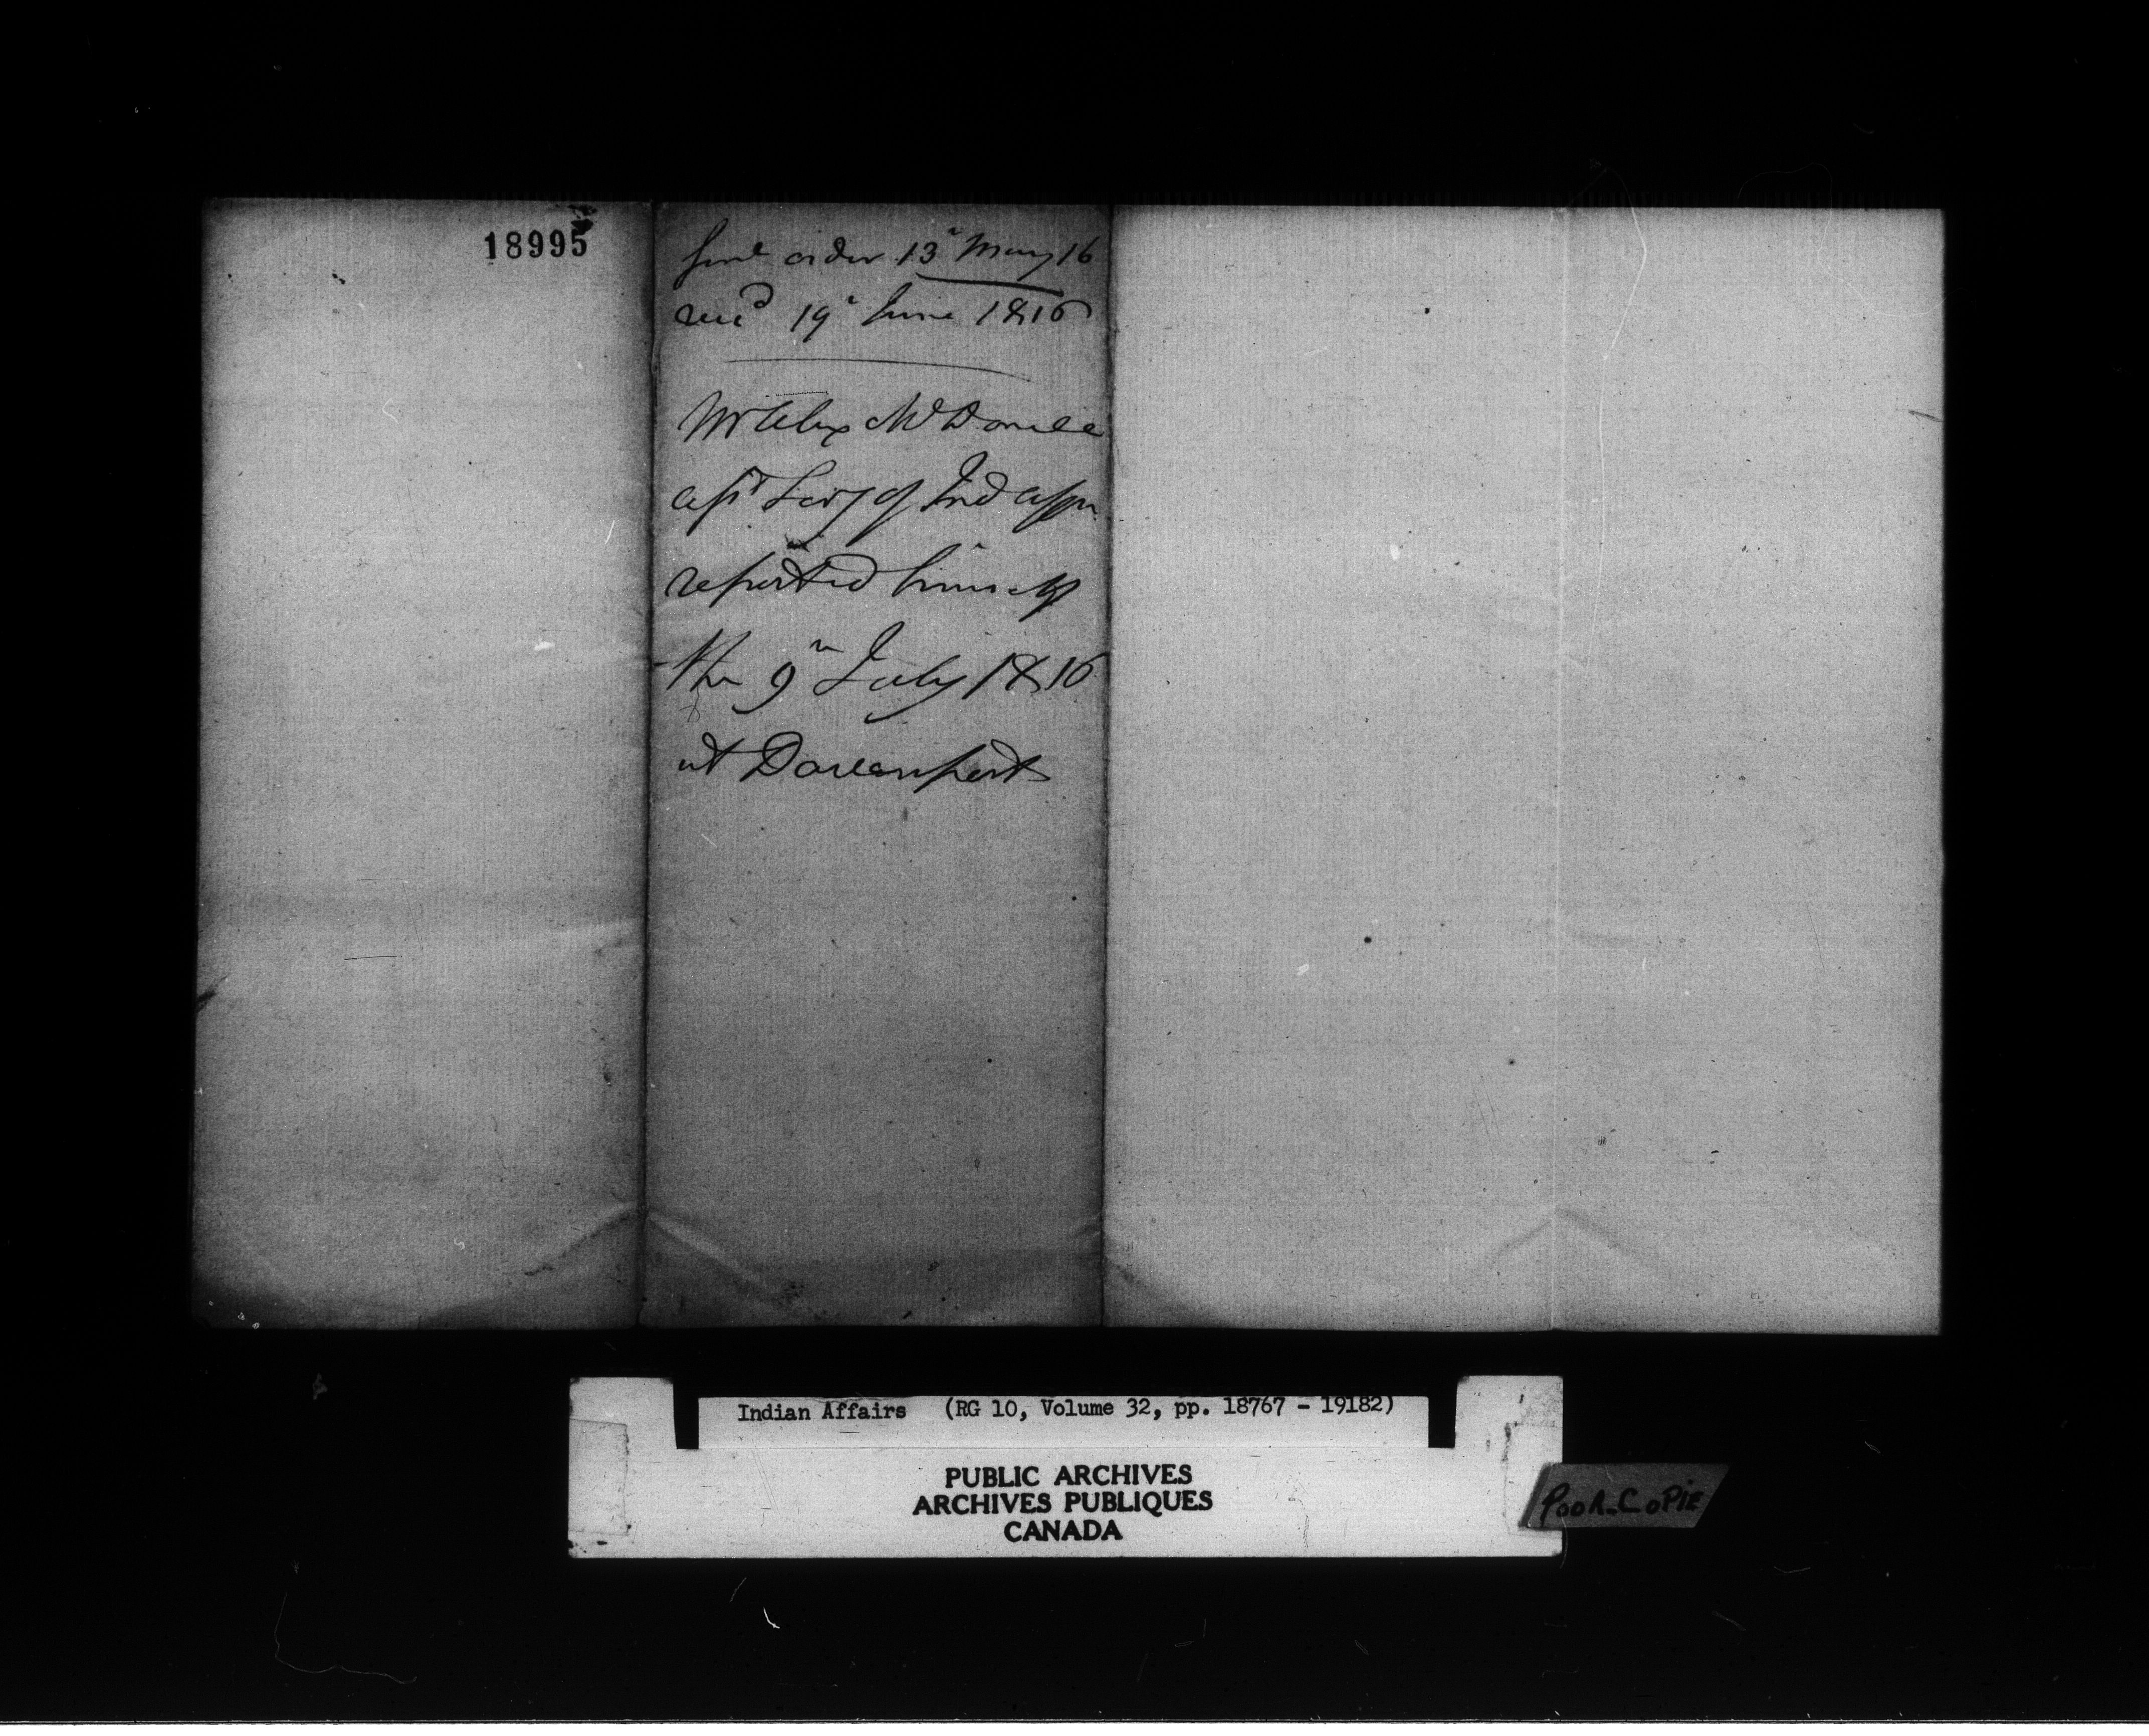 18995
Genl order 13th May 16
recd 19th June 1816
Mr Alex McDonell
asst Secy of Ind affrs
reported himself
the 9th July 1816
at Davenport
Indian Affairs (RG 10, Volume 32, pp. 18767 - 19182)
PUBLIC ARCHIVES
ARCHIVES PUBLIQUES
CANADA
POOR-COPIE